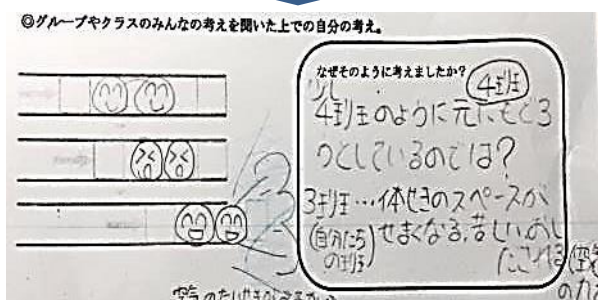 ◎グループやクラスのみんなの考えを聞いた上での自分の考え。
なぜそのように考えましたか?
4班
少し
4班のように元にもどろ
うとしているのでは?
3班…体せきのスペースが
(自分たちの班)
せまくなる,苦しい,おし
だされる
空気のたいせきが
の力